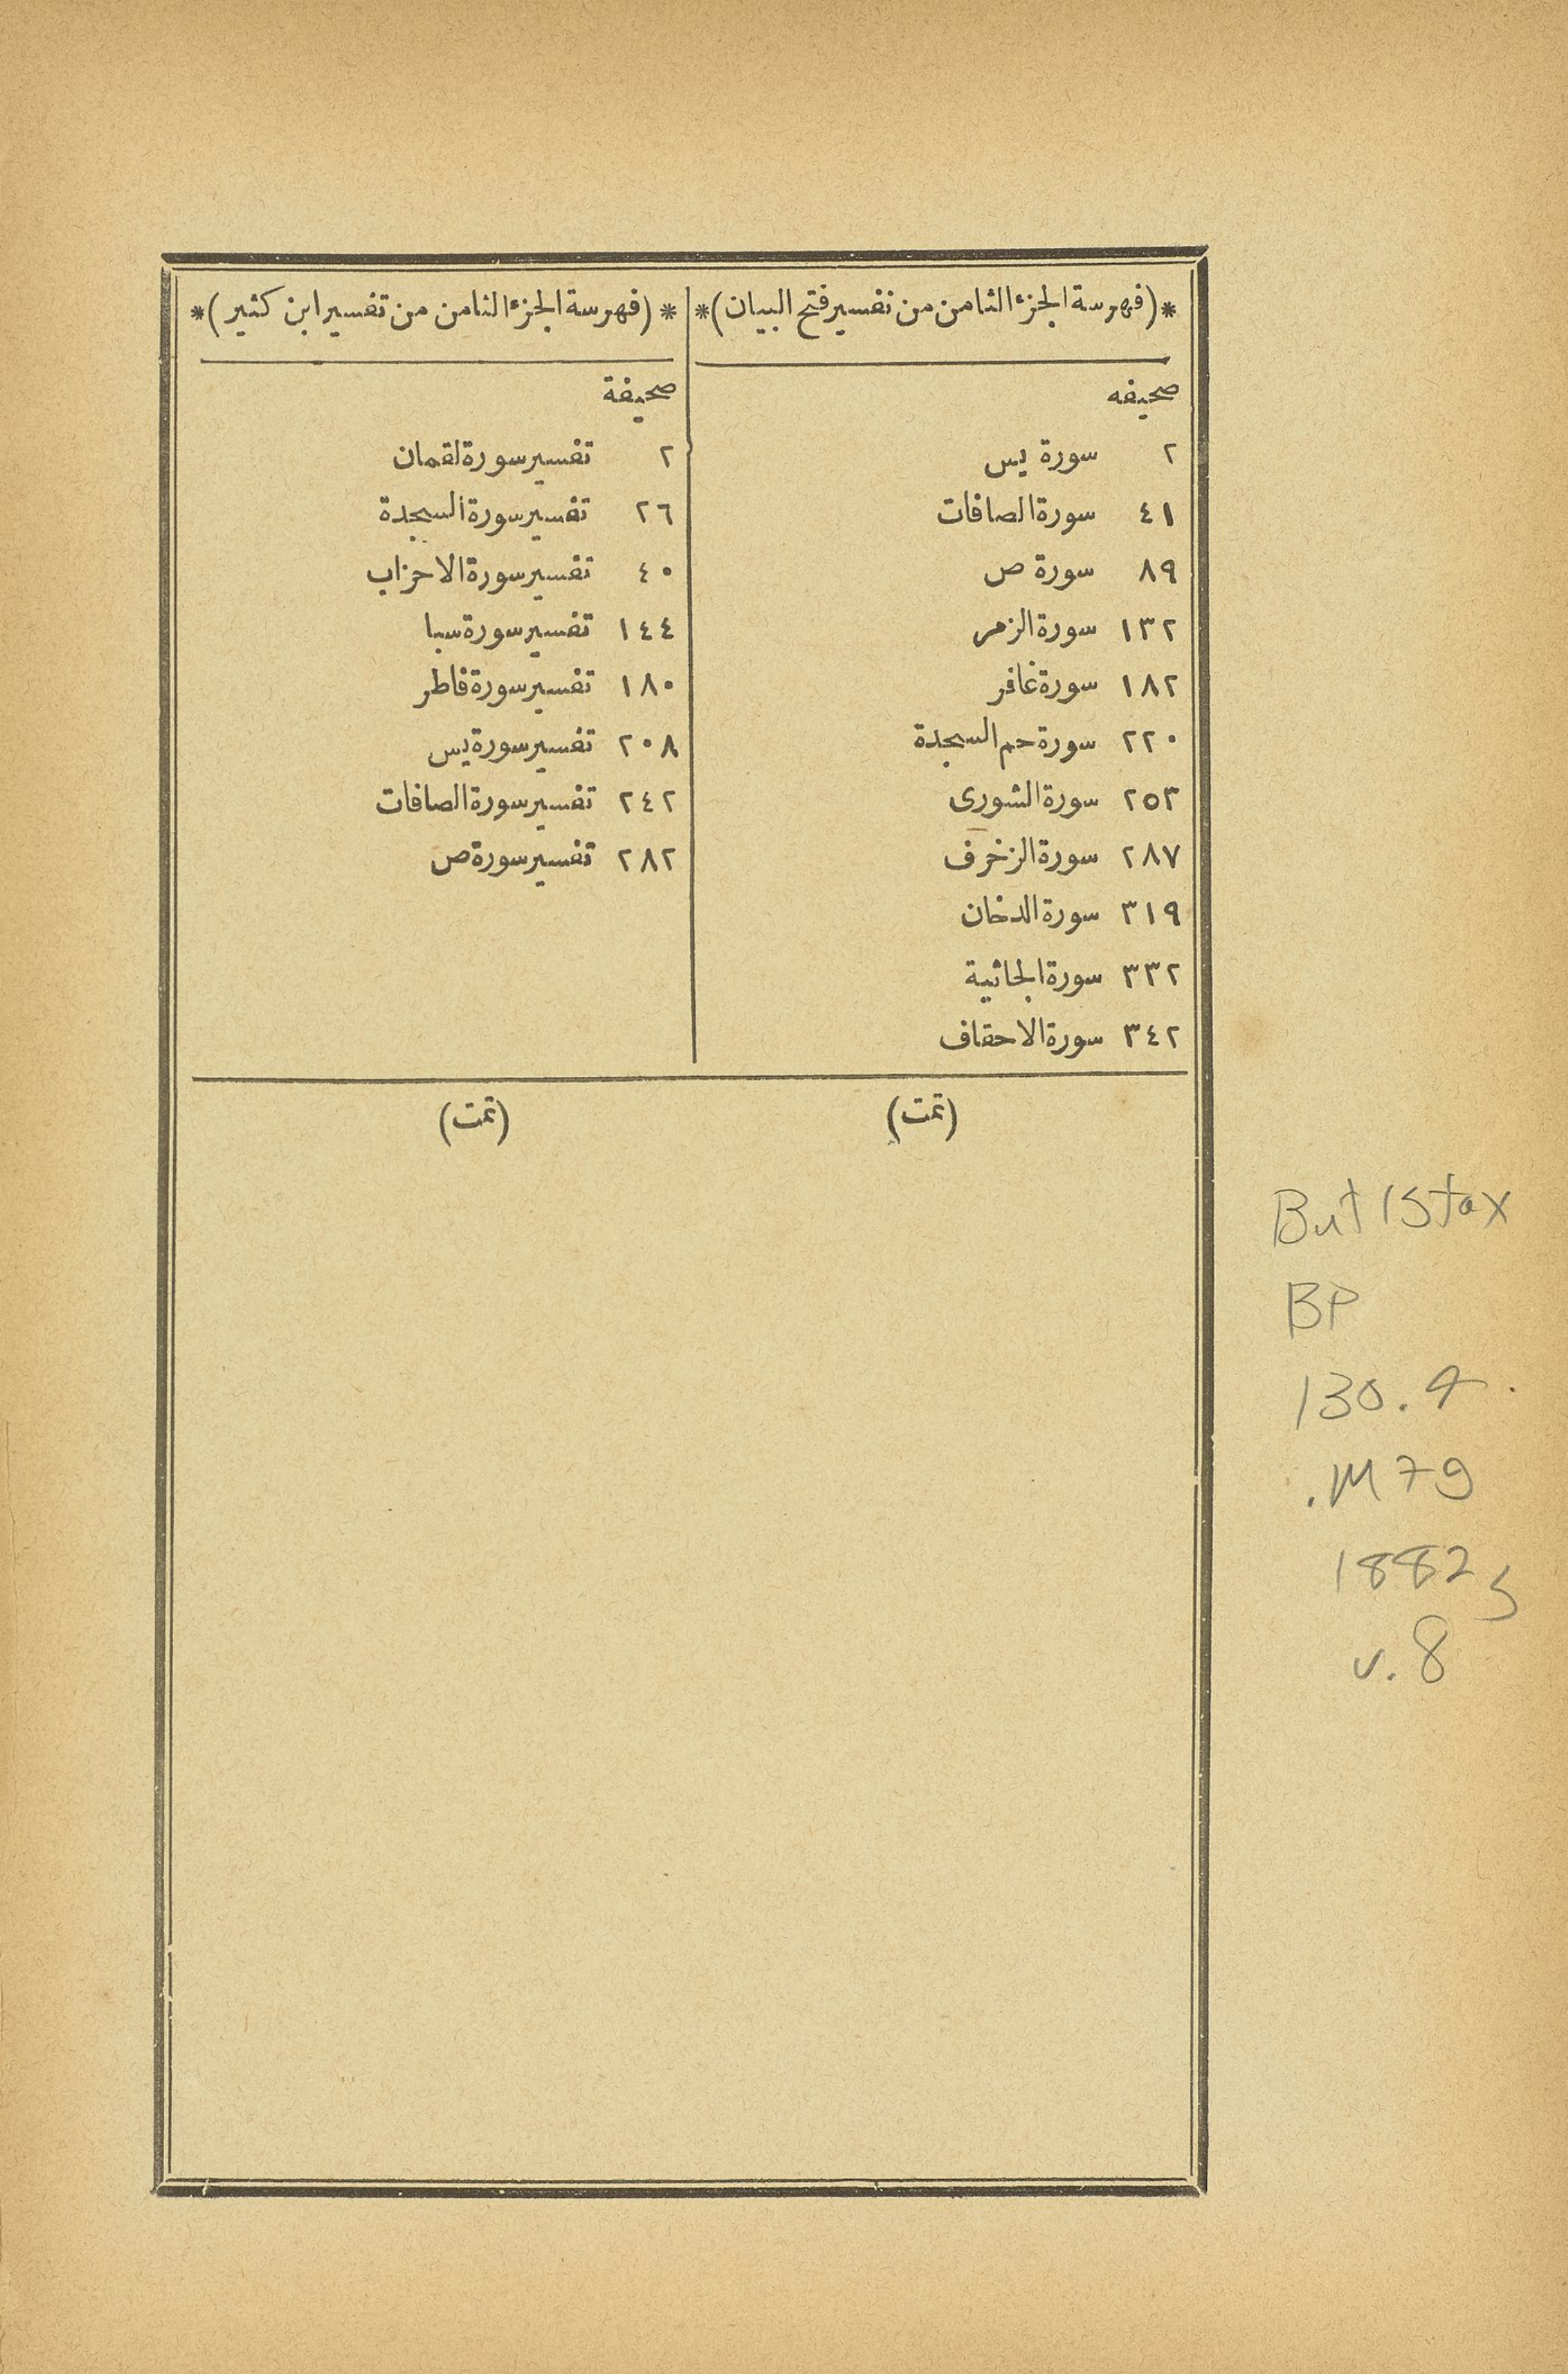 *(فهرسة الجزء الثامن من تفسير فتح البيان)*
صحيفه
٢ سورة يس
٤١ سورة الصافات
٨٩ سورة ص
١٣٢ سورة الزمر
١٨٢ سورة غافر
٢٢٠ سورة حم السجدة
٢٥٣ سورة الشورى
٢٨٧ سورة الزخرف
٣١٩ سورة الدخان
٣٣٢ سورة الجاثية
٣٤٢ سورة الاحقاف
(تمت)
*(فهرسة الجزء الثامن من تفسير ابن كثير)*
صحيفة
٢ تفسير سورة لقمان
٢٦ تفسير سورة السجدة
٤٠ تفسير سورة الاحزاب
١٤٤ تفسير سورة سبا
١٨٠ تفسير سورة فاطر
٢٠٨ تفسير سورة يس
٢٤٢ تفسير سورة الصافات
٢٨٢ تفسير سورة ص
(تمت)
But Stax
BP
130.4
.M79
1882
v.8